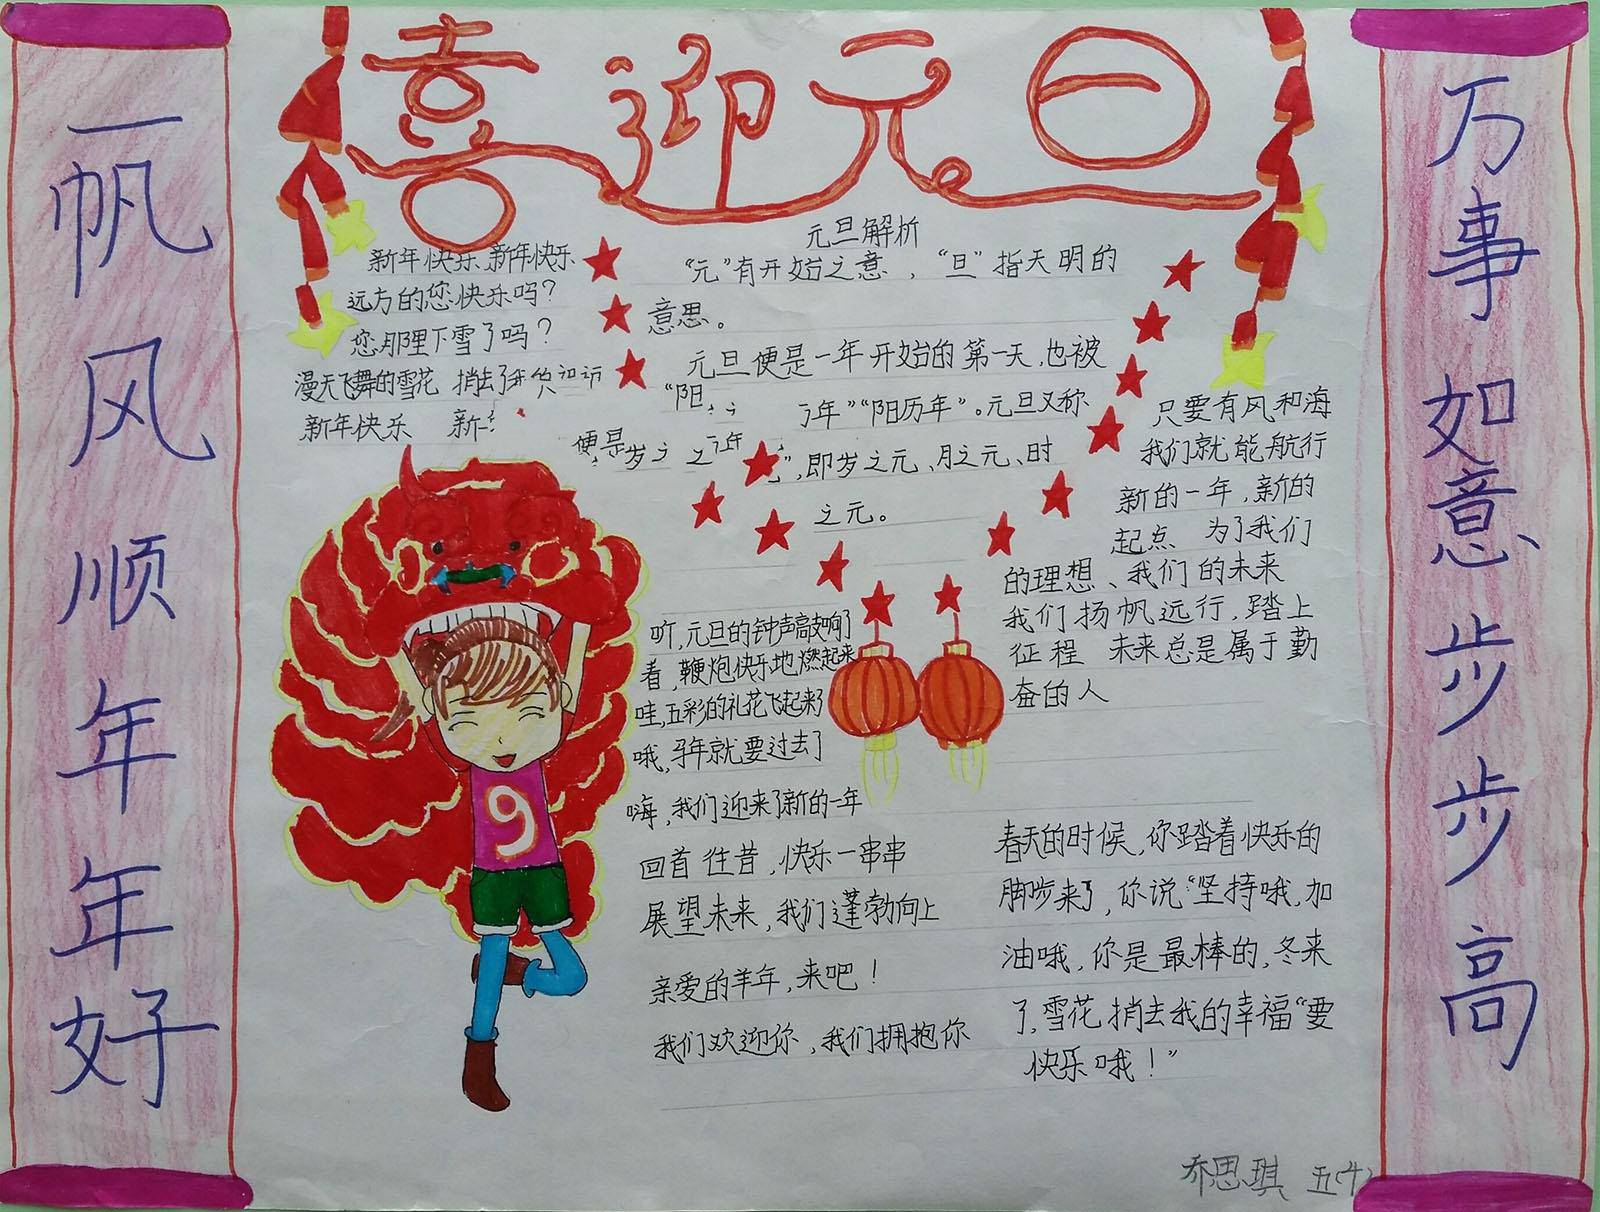 喜迎元旦
一帆风顺年年好
万事如意步步高
新年快乐 新年快乐
远方的您快乐吗？
您那里下雪了吗？
漫天飞舞的雪花 捎去了我的
新年快乐 新
元旦解析
“元”有开始之意，“旦”指天明的
意思。
元旦便是一年开始的第一天，也被
“阳 年”“阳历年”。元旦又称
便是岁之 ”，即岁之元、月之元、时
之元。
只要有风和海
我们就能航行
新的一年，新的
起点 为了我们
的理想、我们的未来
我们扬帆远行，踏上
征程 未来总是属于勤
奋的人
听，元旦的钟声敲响了
看，鞭炮快乐地燃起来
哇，五彩的礼花飞起来了
哦，马年就要过去了
嗨，我们迎来了新的一年
回首往昔，快乐一串串
展望未来，我们蓬勃向上
亲爱的羊年，来吧！
我们欢迎你，我们拥抱你
春天的时候，你踏着快乐的
脚步来了，你说“坚持哦，加
油哦，你是最棒的，冬来
了，雪花捎去我的幸福“要
快乐哦！”
9
乔思琪 五(4)